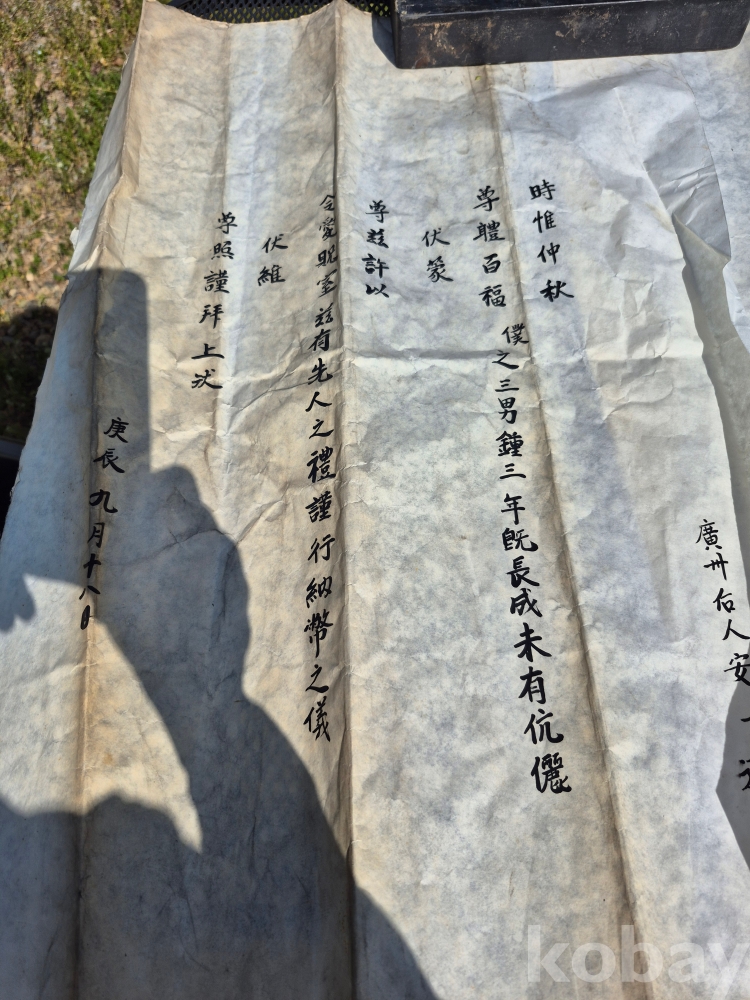 廣州后人安
時惟仲秋
尊體百福 僕之三男鍾三年旣長成未有伉儷
伏蒙
尊慈許以
令愛貺室玆有先人之禮謹行納幣之儀
伏維
尊照謹拜上狀
庚辰 九月十八日
kobay